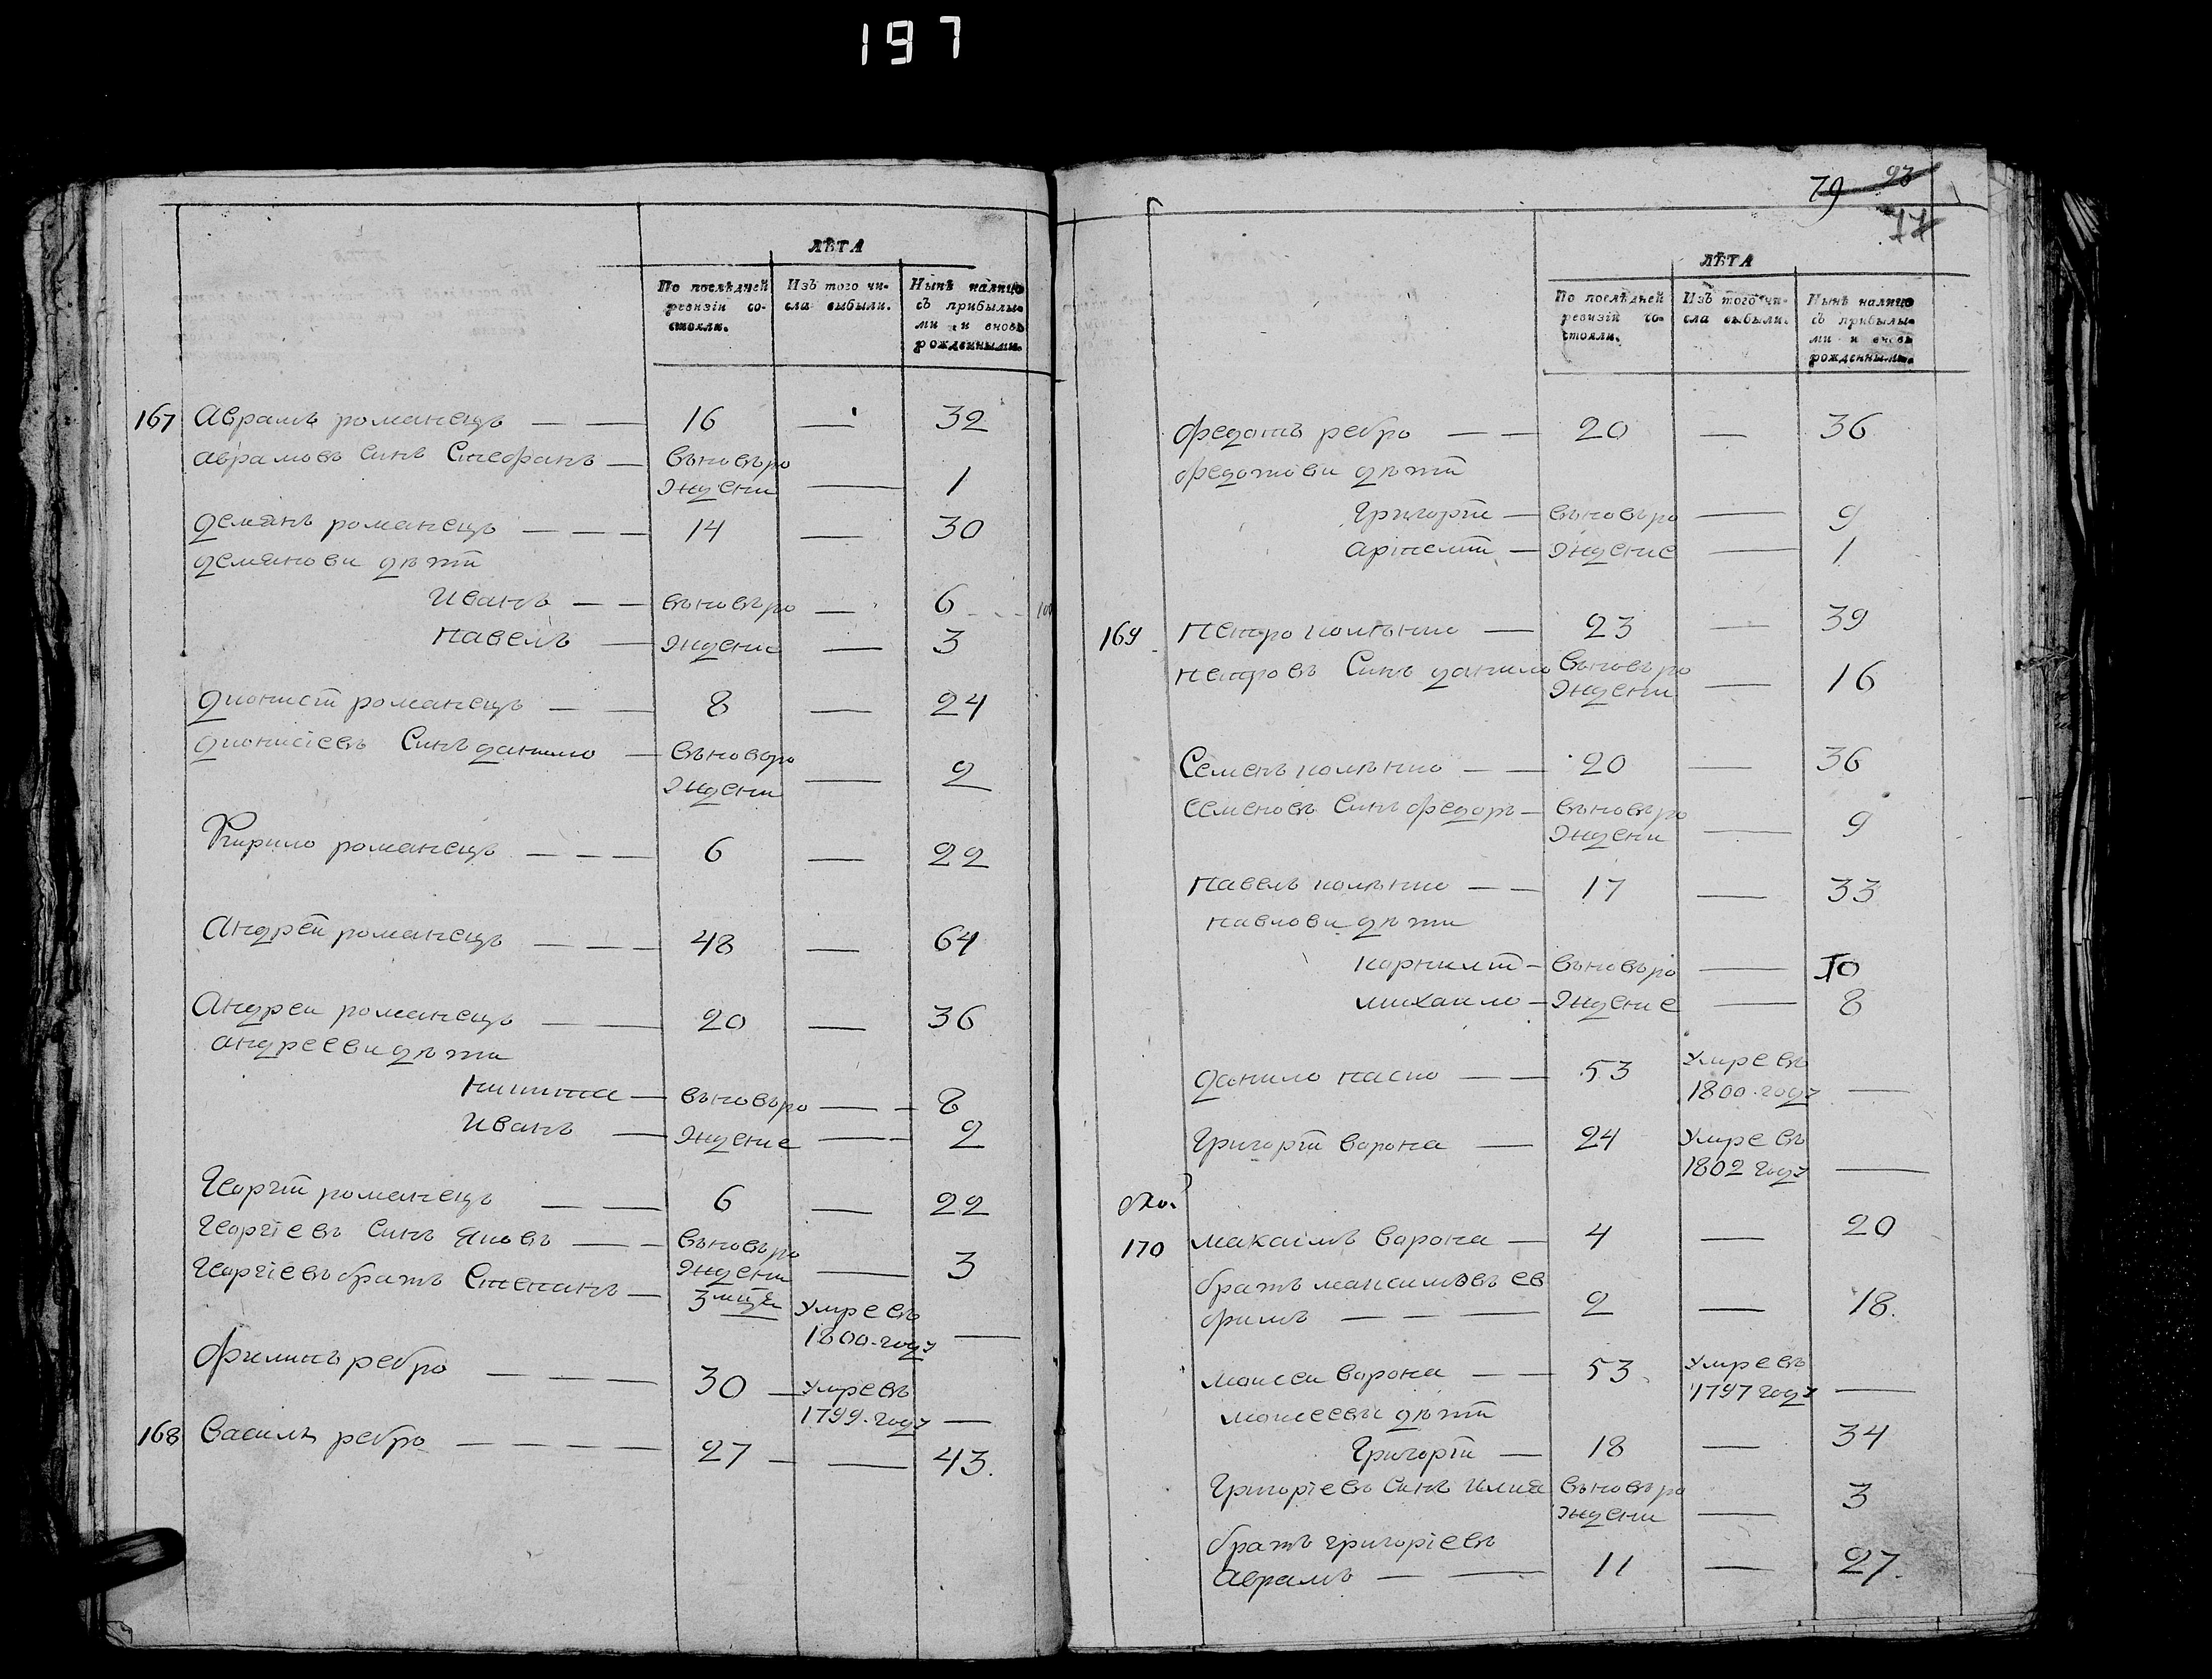 197
ЛѢТА
По послѣдней ревизіи состояли.
Изъ того числа выбыли.
Нынѣ налицо съ прибылыми и вновь рожденными.
167 Аврамъ романецъ — — 16 — 32
аврамовъ Синъ Стефанъ — въновъро
Ждени — 1
демянъ романецъ — — — 14 — 30
демянови дѣти
Иванъ — — въновъро — 6
павелъ — Ждение — 3
дионисій романецъ — — 8 — 24
дионисіевъ Синъ данило — въновъро
Ждени — 2
Кирило романецъ — — — 6 — 22
Андрей романецъ — — — 48 — 64
Андреи романецъ — — 20 — 36
андрееви дѣти
никита — въновъро — — 8
Иванъ — Ждение — — 2
Георгій романецъ — — 6 — 22
Георгіевъ Синъ Яковъ — — въновъро
Ждени — 3
Георгіевъ братъ Степанъ — 3 Умре въ
1800. году —
Филипъ ребро — — — 30 — Умре въ
1799. году —
168 Василь ребро — — — — 27 — — 43.
79 93
77
ЛѢТА
По послѣдней ревизіи состояли.
Изъ того числа выбыли.
Нынѣ налицо съ прибылыми и вновь рожденными.
Федотъ ребро — — 20 — 36
федотови дѣти
Григорій — въновъро — 9
артемій — Ждение — 1
169 петро колѣнко — 23 — 39
петровъ Синъ данило въновъро
Ждени — 16
Семенъ колѣнко — — 20 — 36
семеновъ Синъ Федоръ — въновъро
Ждени — 9
павелъ колѣнко — — 17 — 33
павлови дѣти
корнилій — въновъро — 10
михаило — Ждение — 8
данило паско — — 53 Умре въ
1800. году —
Григорій ворона — 24 Умре въ
1802 году —
170 максимъ ворона — 4 — 20
братъ максимовъ ев
фимъ — — — 2 — 18.
моисеи ворона — — 53 Умре въ
1797 году —
моисееви дѣти
Григорій — 18 — 34
Григоріевъ Синъ илия въновъро
Ждени — 3
братъ григоріевъ
аврамъ — — 11 — 27.